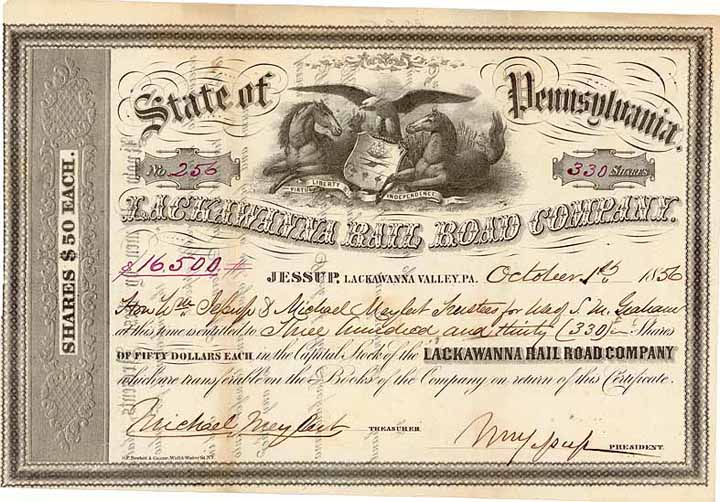 State of Pennsylvania.
No. 256
330 Shares
VIRTUE LIBERTY INDEPENDENCE
LACKAWANNA RAIL ROAD COMPANY.
$16.500.
JESSUP, LACKAWANNA VALLEY, PA. October 1st 1856
Hon Wm Jessup & Michael Meylert Trustees for use of S. M. Graham
at this time is entitled to Three hundred and thirty (330) Shares
OF FIFTY DOLLARS EACH in the Capital Stock of the LACKAWANNA RAIL ROAD COMPANY
which are transferable on the Books of the Company on return of this Certificate.
Michael Meylert TREASURER.
Wm Jessup PRESIDENT.
SHARES $50 EACH.